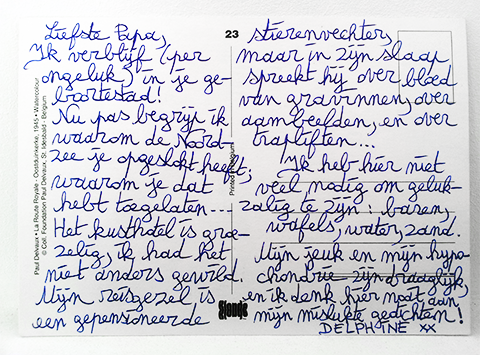 Liefste Papa,
Ik verblijf (per
ongeluk) in je ge-
boortestad!
Nu pas begrijp ik
waarom de Noord-
zee je opgeslokt heeft,
waarom je dat
hebt toegelaten...
Het kusthotel is groe-
zelig, ik had het
niet anders gewild.
Mijn reisgezel is
een gepensioneerde
23
stierenvechter,
maar in zijn slaap
spreekt hij over bloed
van gravinnen, over
aambeelden, en over
trapliften...
Ik heb hier niet
veel nodig om geluk-
zalig te zijn: baren,
wafels, water, zand.
Mijn jeuk en mijn hypo-
chondrie zijn draaglijk,
en ik denk hier nooit aan
mijn mislukte gedichten!
DELPHINE xx
Paul Delvaux • La Route Royale - Oostduinkerke, 1945 • Watercolour
© Coll. Foundation Paul Delvaux, St. Idesbald - Belgium
Printed in Belgium